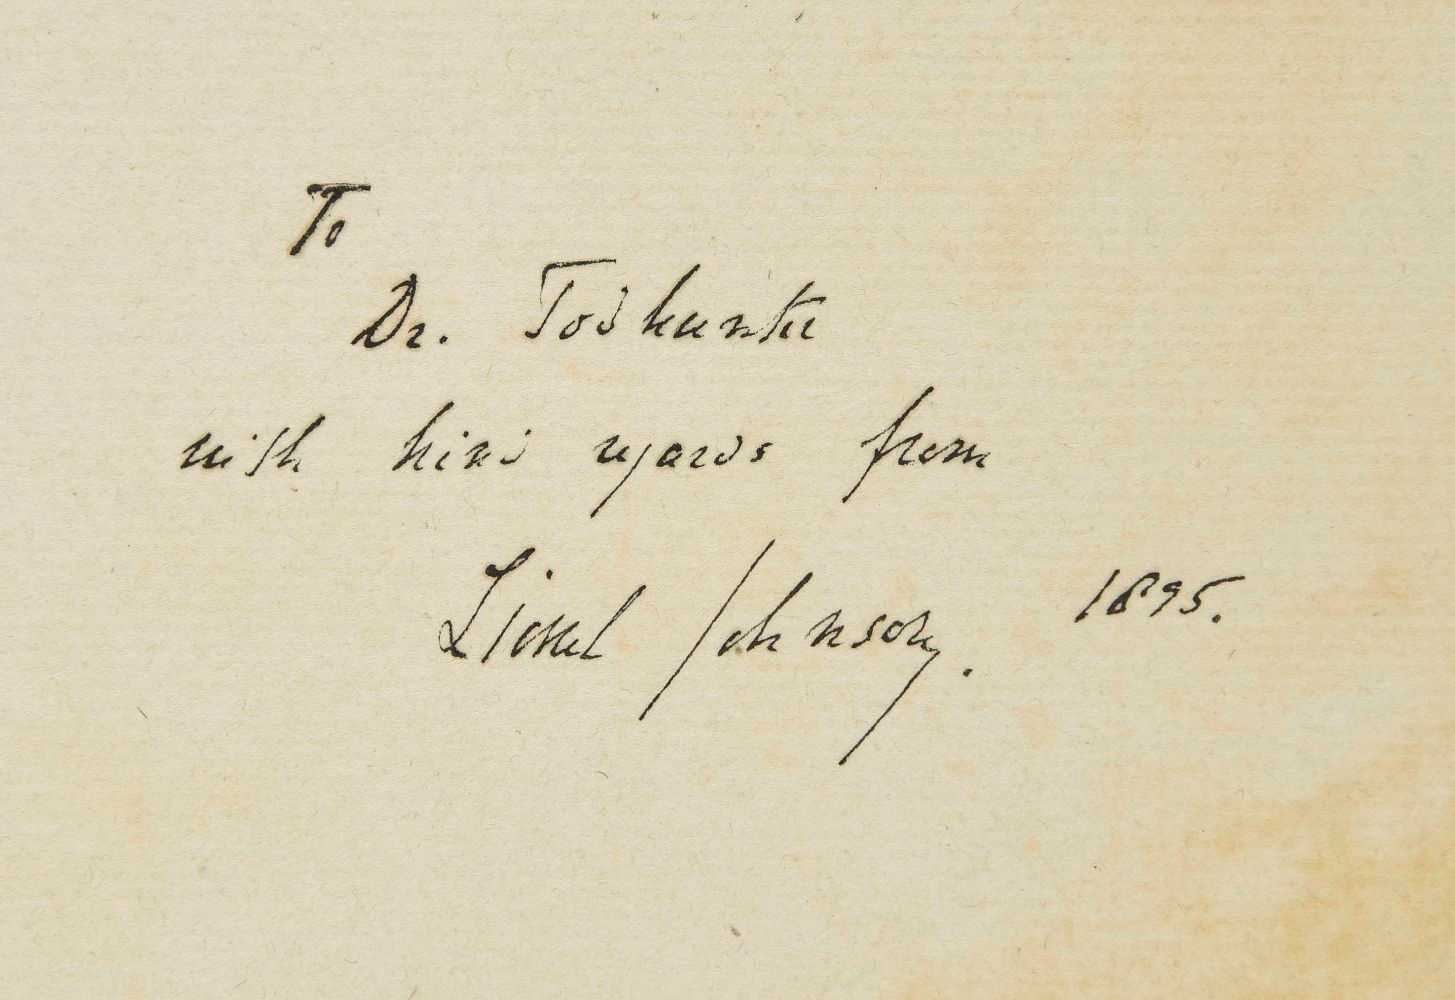 To
Dr. Todhunter
with kind regards from
Lionel Johnson. 1895.